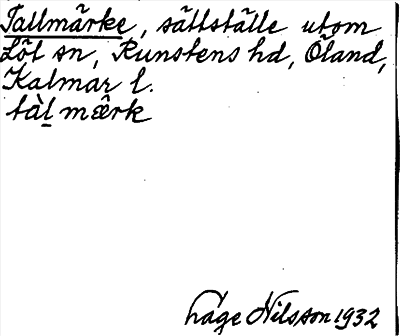 Tallmärke, sättställe utom
Löt sn, Runstens hd, Öland,
Kalmar l.
tàl mæ̂rk
håge Nilsson 1932